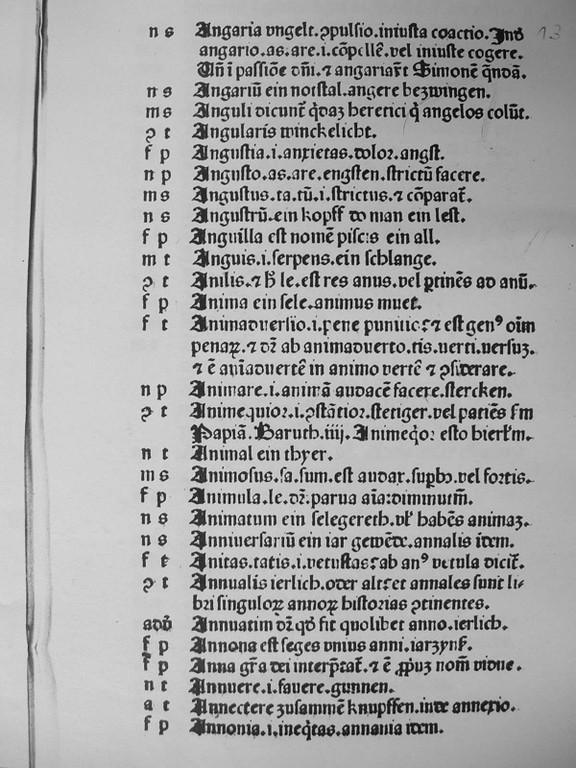 n s Angaria vngelt.ꝯpulsio.iniusta coactio.Inď 13
angario.as.are.i.cōpellē.vel iniuste cogere.
Un̄ ī passiōe dn̄i.⁊ angariar̄t Simonē qn̄dā.
n s Angariū ein notstal.angere bezwingen.
m s Anguli dicunt̄ qďaz heretici q̇ angelos colūt.
ꝯ t Angularis winckelicht.
f p Angustia.i.anxietas.dolor.angst.
n p Angusto.as.are.engsten.strictū facere.
m s Angustus.ta.tū.i.strictus.⁊ cōparat̄.
n s Angustrū.ein kopff do man ein lest.
f p Anguilla est nomē piscis ein all.
m t Anguis.i.serpens.ein schlange.
ꝯ t Anilis.⁊ h̄ le.est res anus.vel ꝑtinēs ad anū.
f p Anima ein sele.animus muet.
f t Animaduersio.i.pene punitio ⁊ est genꝰ oīm
penaꝝ.⁊ dꝛ ab animaduerto.tis.uerti.uersuz.
⁊ ē aīaduertē in animo vertē ⁊ ꝯsiderare.
n p Animare.i.animā audacē facere.stercken.
ꝯ t Animequior.i.ꝯstātior.stetiger.vel patiēs ẜm
Papiā.Baruth.iiij.Animeq̇oꝛ esto hierlm̄.
n t Animal ein thyer.
m s Animosus.sa.sum.est audax.supbꝰ.vel fortis.
f p Animula.le.dꝛ.parua aīa:diminutm̄.
n s Animatum ein selegereth.vł habēs animaz.
n s Anniuersariū ein iar gewēde.annalis idem.
f t Anitas.tatis.i.vetustas ab anꝰ vetula dicit̄.
ꝯ t Annualis ierlich.oder altzet annales sunt li⸗
bri singuloꝝ annoꝝ historias ꝯtinentes.
adū Annuatim dꝛ qď fit quolibet anno.ierlich.
f p Annona est seges vnius anni.iarzynß.
f p Anna gr̄a dei interp̄tat̄.⁊ ē ꝓpuz nom̄ vidue.
n t Annuere.i.fauere.gunnen.
a t Annectere zusammē knupffen.inde annexio.
f p Annonia.i.ineq̇tas.annania idem.